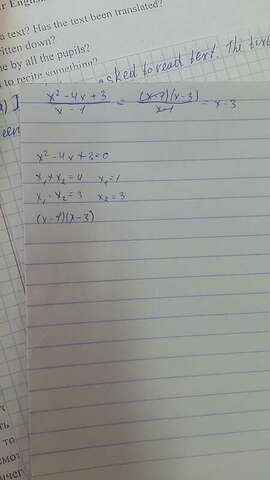 r Engli
a text? Has the text been translated?
itten down?
ne by all the pupils?
l to recite something?
asked to read text. The text
x² - 4x + 3 / x - 1 = (x-1)(x-3) / x-1 = x-3
x² - 4x + 3 = 0
x₁ + x₂ = 4 x₁ = 1
x₁ · x₂ = 3 x₂ = 3
(x-1)(x-3)